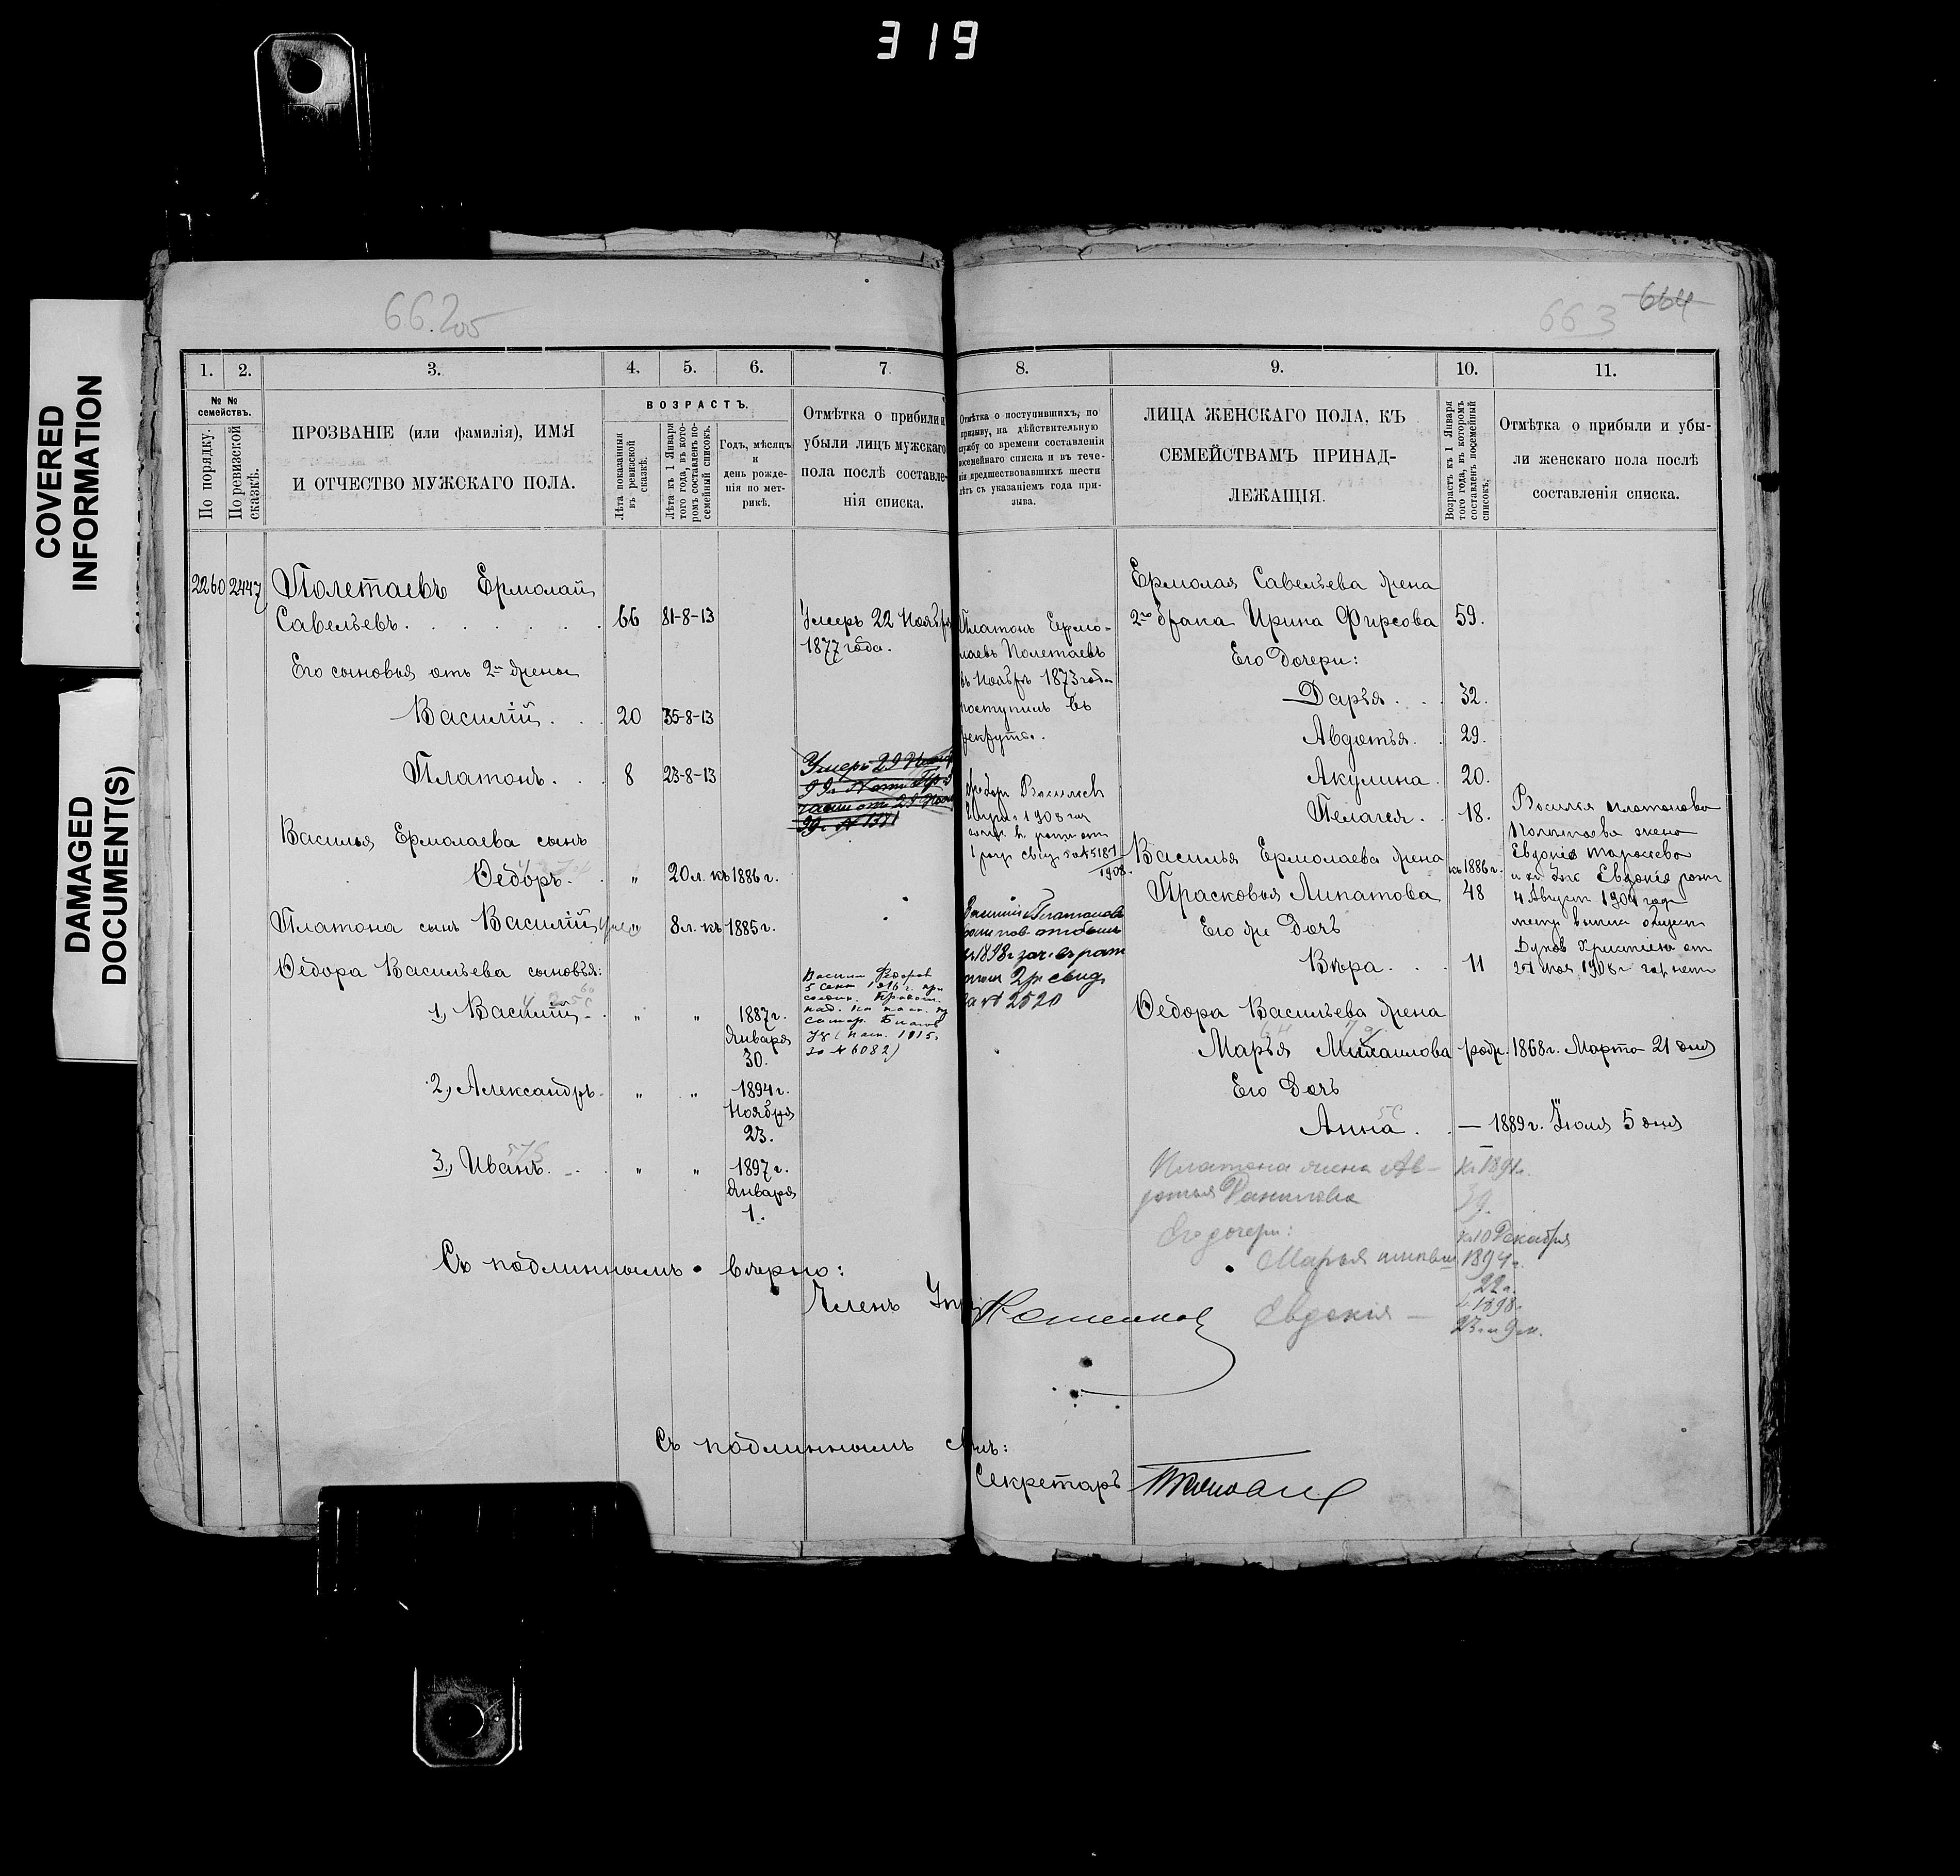 319
COVERED
INFORMATION
DAMAGED
DOCUMENT(S)
66.205
663 664
1.
2.
3.
4.
5.
6.
7.
№ №
семействъ.
По порядку.
По ревизской
сказкѣ.
ПРОЗВАНІЕ (или фамилія), ИМЯ
И ОТЧЕСТВО МУЖСКАГО ПОЛА.
ВОЗРАСТЪ.
Лѣта показанія
въ ревизской
сказкѣ.
Лѣта къ 1 Января
того года, въ кото-
ромъ составленъ по-
семейный списокъ.
Годъ, мѣсяцъ
и
день рожде-
нія по мет-
рикѣ.
Отмѣтка о прибыли и
убыли лицъ мужскаго
пола послѣ составле-
нія списка.
2260 2447 Полетаевъ Ермолай
Савельевъ. 66 81-8-13
Умеръ 22 Ноября
1877 года.
Его сыновья отъ 2й жены
Василій. 20 35-8-13
Платонъ. 8 23-8-13
Умеръ 29
Василья Ермолаева сынъ
Ѳедоръ. " 20 л. къ 1886 г.
Платона сынъ Василій " 8 л. къ 1885 г.
Ѳедора Васильева сыновья:
1, Василій " " 1887 г.
Января
30.
Василій Федоров
5 сент 1916 г. при
за № 6082)
2, Александръ. " " 1894 г.
Ноября
23.
3, Иванъ. " " 1897 г.
Января
1.
Съ подлиннымъ вѣрно:
Членъ
Съ подлиннымъ
8.
9.
10.
11.
Отмѣтка о поступившихъ, по
призыву, на дѣйствительную
службу со времени составленія
посемейнаго списка и въ тече-
ніи предшествовавшихъ шести
лѣтъ съ указаніемъ года при-
зыва.
ЛИЦА ЖЕНСКАГО ПОЛА, КЪ
СЕМЕЙСТВАМЪ ПРИНАД-
ЛЕЖАЩІЯ.
Возрастъ къ 1 Января
того года, въ которомъ
составленъ посемейный
списокъ.
Отмѣтка о прибыли и убы-
ли женскаго пола послѣ
составленія списка.
Платонъ Ермо-
лаевъ Полетаевъ
въ Ноябрѣ 1873 года
поступилъ въ
рекруты.
Федоръ Васильев
1908
Василій Платоновъ
1898 г зач. въ рат
2 р свид
за № 2520
Ермолая Савельева жена
2го брака Ирина Фирсова 59.
Его дочери:
Дарья. 32.
Авдотья. 29.
Акулина. 20.
Пелагея. 18.
Василья Ермолаева жена къ 1886 г.
Прасковья Липатова 48
Его же дочь
Вѣра. 11
Василія Платонова
Полетаева жена
Евдокія
и их дочь Евдокія рожд
4 Август 1904 года
27 мая 1908 г
Ѳедора Васильева жена
Марья Михаилова родл. 1868 г. Марта 21 дня
Его дочь
Анна. — 1889 г. Іюля 5 дня
Платона жена Ав- къ 1891 г.
дотья Данилова 39.
Его дочери: къ 10 Декабря
Марья 1894 г.
22 г.
Евдокія — 1898 г.
23 г и 9 м.
Секретарь